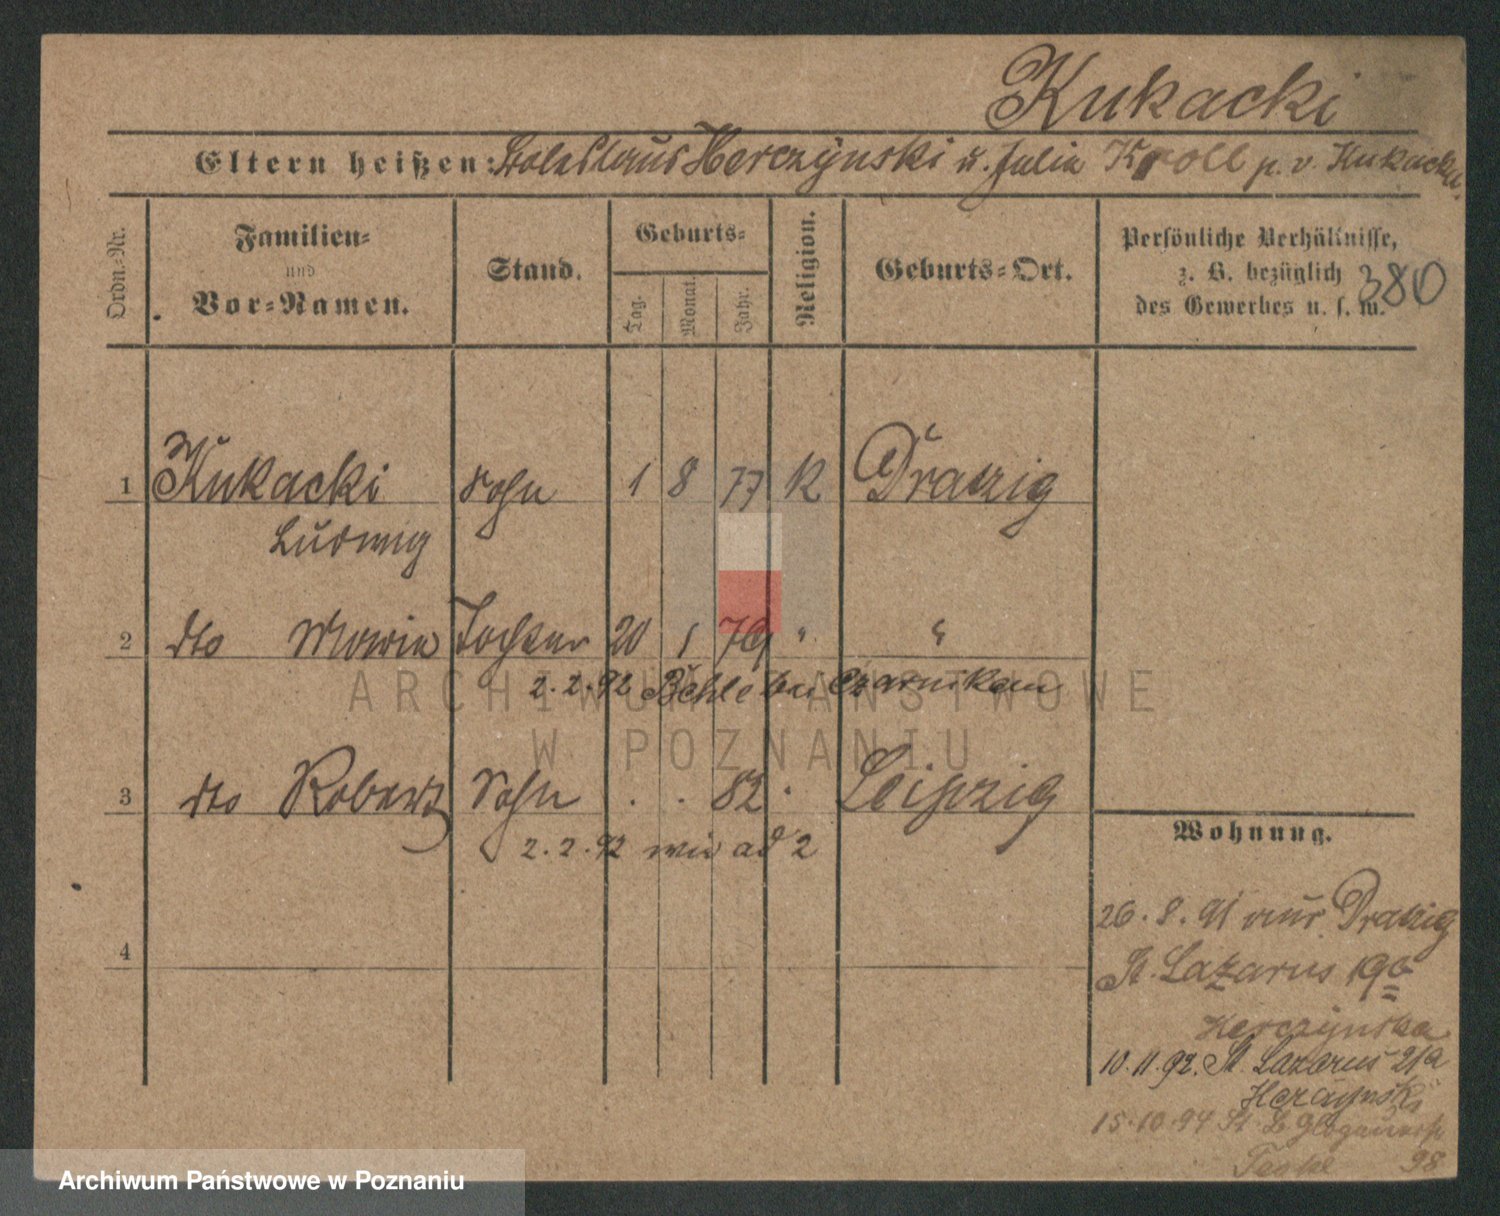 Kukacki
Eltern heißen: Boleslaus Herczynski u. Julia Kroll p. v. Kukacka.
Ordn.-Nr.
Familien-
und
Vor-Namen.
Stand.
Geburts-
Tag.
Monat.
Jahr.
Religion.
Geburts-Ort.
Persönliche Verhältnisse,
z. B. bezüglich
des Gewerbes u. s. w.
380
1 Kukacki Sohn 1 8 77 K Dratzig
Ludwig
2 dto Marie Tochter 20 1 79 " "
2.2.92 Behle bei Czarnikau
3 dto Robert Sohn . . 82 " Leipzig
2.2.92 wie ad 2
4
Wohnung.
26.8.91 aus Dratzig
St. Lazarus 19b
Herczynska
10.11.92. St. Lazarus 21a
Herczynski
15.10.94 St. L. Glogauerstr
98
ARCHIWUM PAŃSTWOWE
W POZNANIU
Archiwum Państwowe w Poznaniu